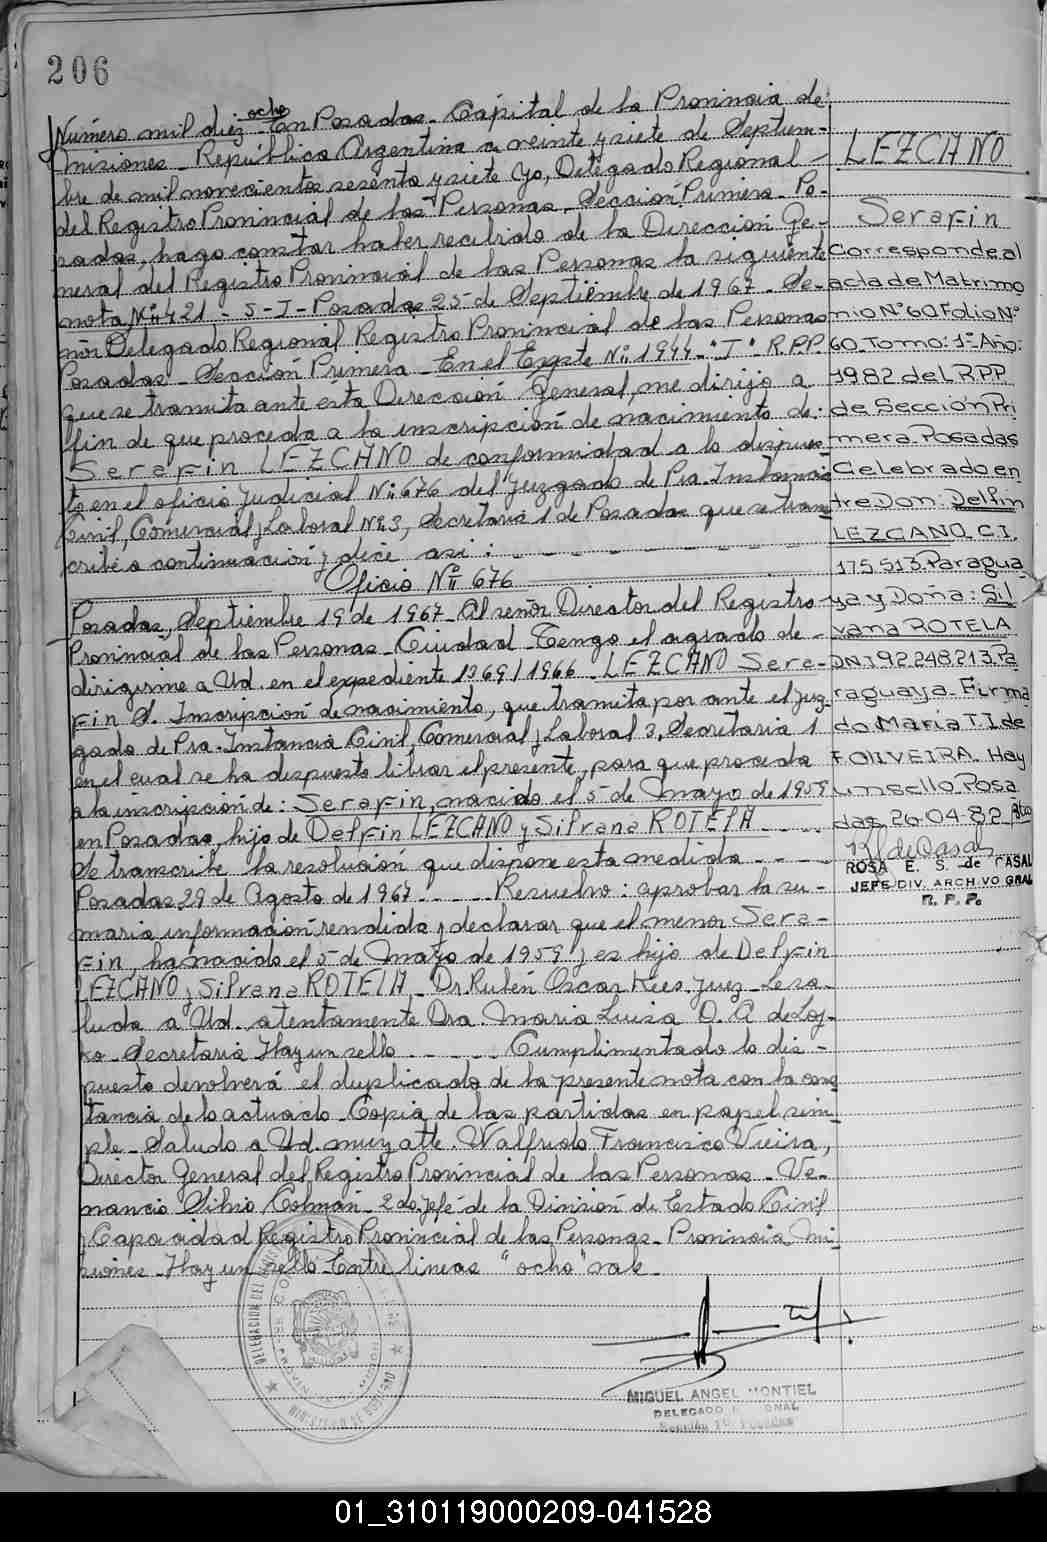 206
ocho
Número mil diez En Posadas - Capital de la Provincia de
Misiones - República Argentina a veinte y siete de Septiem-
bre de mil novecientos sesenta y siete Yo, Delegado Regional
del Registro Provincial de las Personas, Sección Primera - Po-
sadas, hago constar haber recibido de la Dirección Ge-
neral del Registro Provincial de las Personas la siguiente
nota, Nº 421 - S-I - Posadas 25 de Septiembre de 1967 - Se-
ñor Delegado Regional Registro Provincial de las Personas
Posadas - Sección Primera - En el Expte Nº 1944 - "I" R.P.P.
que se tramita ante ésta Dirección General, me dirijo a
fin de que proceda a la inscripción de nacimiento de:
Serafin LEZCANO de conformidad a lo dispues-
to en el oficio Judicial Nº 676 del Juzgado de Pra. Instancia
Civil, Comercial y Laboral Nº 3, Secretaria 1 de Posadas que se trans-
cribe a continuación y dice así:
Oficio Nº 676
Posadas, Septiembre 19 de 1967 - Al señor Director del Registro
Provincial de las Personas - Ciudad - Tengo el agrado de
dirigirme a Ud. en el expediente 1369/1966 - LEZCANO Sera-
fin S. Inscripción de nacimiento, que tramita por ante el Juz-
gado de Pra. Instancia Civil, Comercial y Laboral 3, Secretaria 1
en el cual se ha dispuesto librar el presente, para que proceda
a la inscripción de: Serafin, nacido el 5 de Mayo de 1959
en Posadas, hijo de Delfin LEZCANO y Silvana ROTELA
Se transcribe la resolución que dispone esta medida
Posadas 29 de Agosto de 1967 Resuelvo: aprobar la su-
maria información rendida y declarar que el menor Sera-
fin, ha nacido el 5 de Mayo de 1959 y es hijo de Delfin
LEZCANO y Silvana ROTELA - Dr. Rubén Oscar Kees. Juez - Le sa-
luda a Ud. atentamente Dra. Maria Luisa O. A de Loj-
ko - Secretaria Hay un sello Cumplimentado lo dis-
puesto devolverá el duplicado de la presente nota con la cons-
tancia de lo actuado - Copia de las partidas en papel sim-
ple - Saludo a Ud. muy atte. Walfrido Francisco Vieira,
Director General del Registro Provincial de las Personas - Ve-
nancio Silvio Colmán - 2do. Jefe de la División de Estado Civil
y Capacidad Registro Provincial de las Personas - Provincia Mi-
siones - Hay un sello - Entre lineas "ocho" vale
MIGUEL ANGEL MONTIEL
DELEGADO REGIONAL
Sección 1º Posadas
MINISTERIO DE GOBIERNO
LEZCANO
Serafin
Corresponde al
acta de Matrimo
nio Nº 60 Folio Nº
60. Tomo: 1º Año:
1982 del R.P.P
de Sección Pri
mera. Posadas
Celebrado en
tre Don: Delfin
LEZCANO. C.I.
175.513. Paragua
ya y Doña: Sil
vana ROTELA
DNI 92.248.213. Pa
raguaya - Firma
do Maria T.I. de
F. OLIVEIRA. Hay
un sello Posa
das 26-04-82
ROSA E. S. de CASAL
JEFE DIV. ARCHIVO GRAL
R. P. P.
01_310119000209-041528